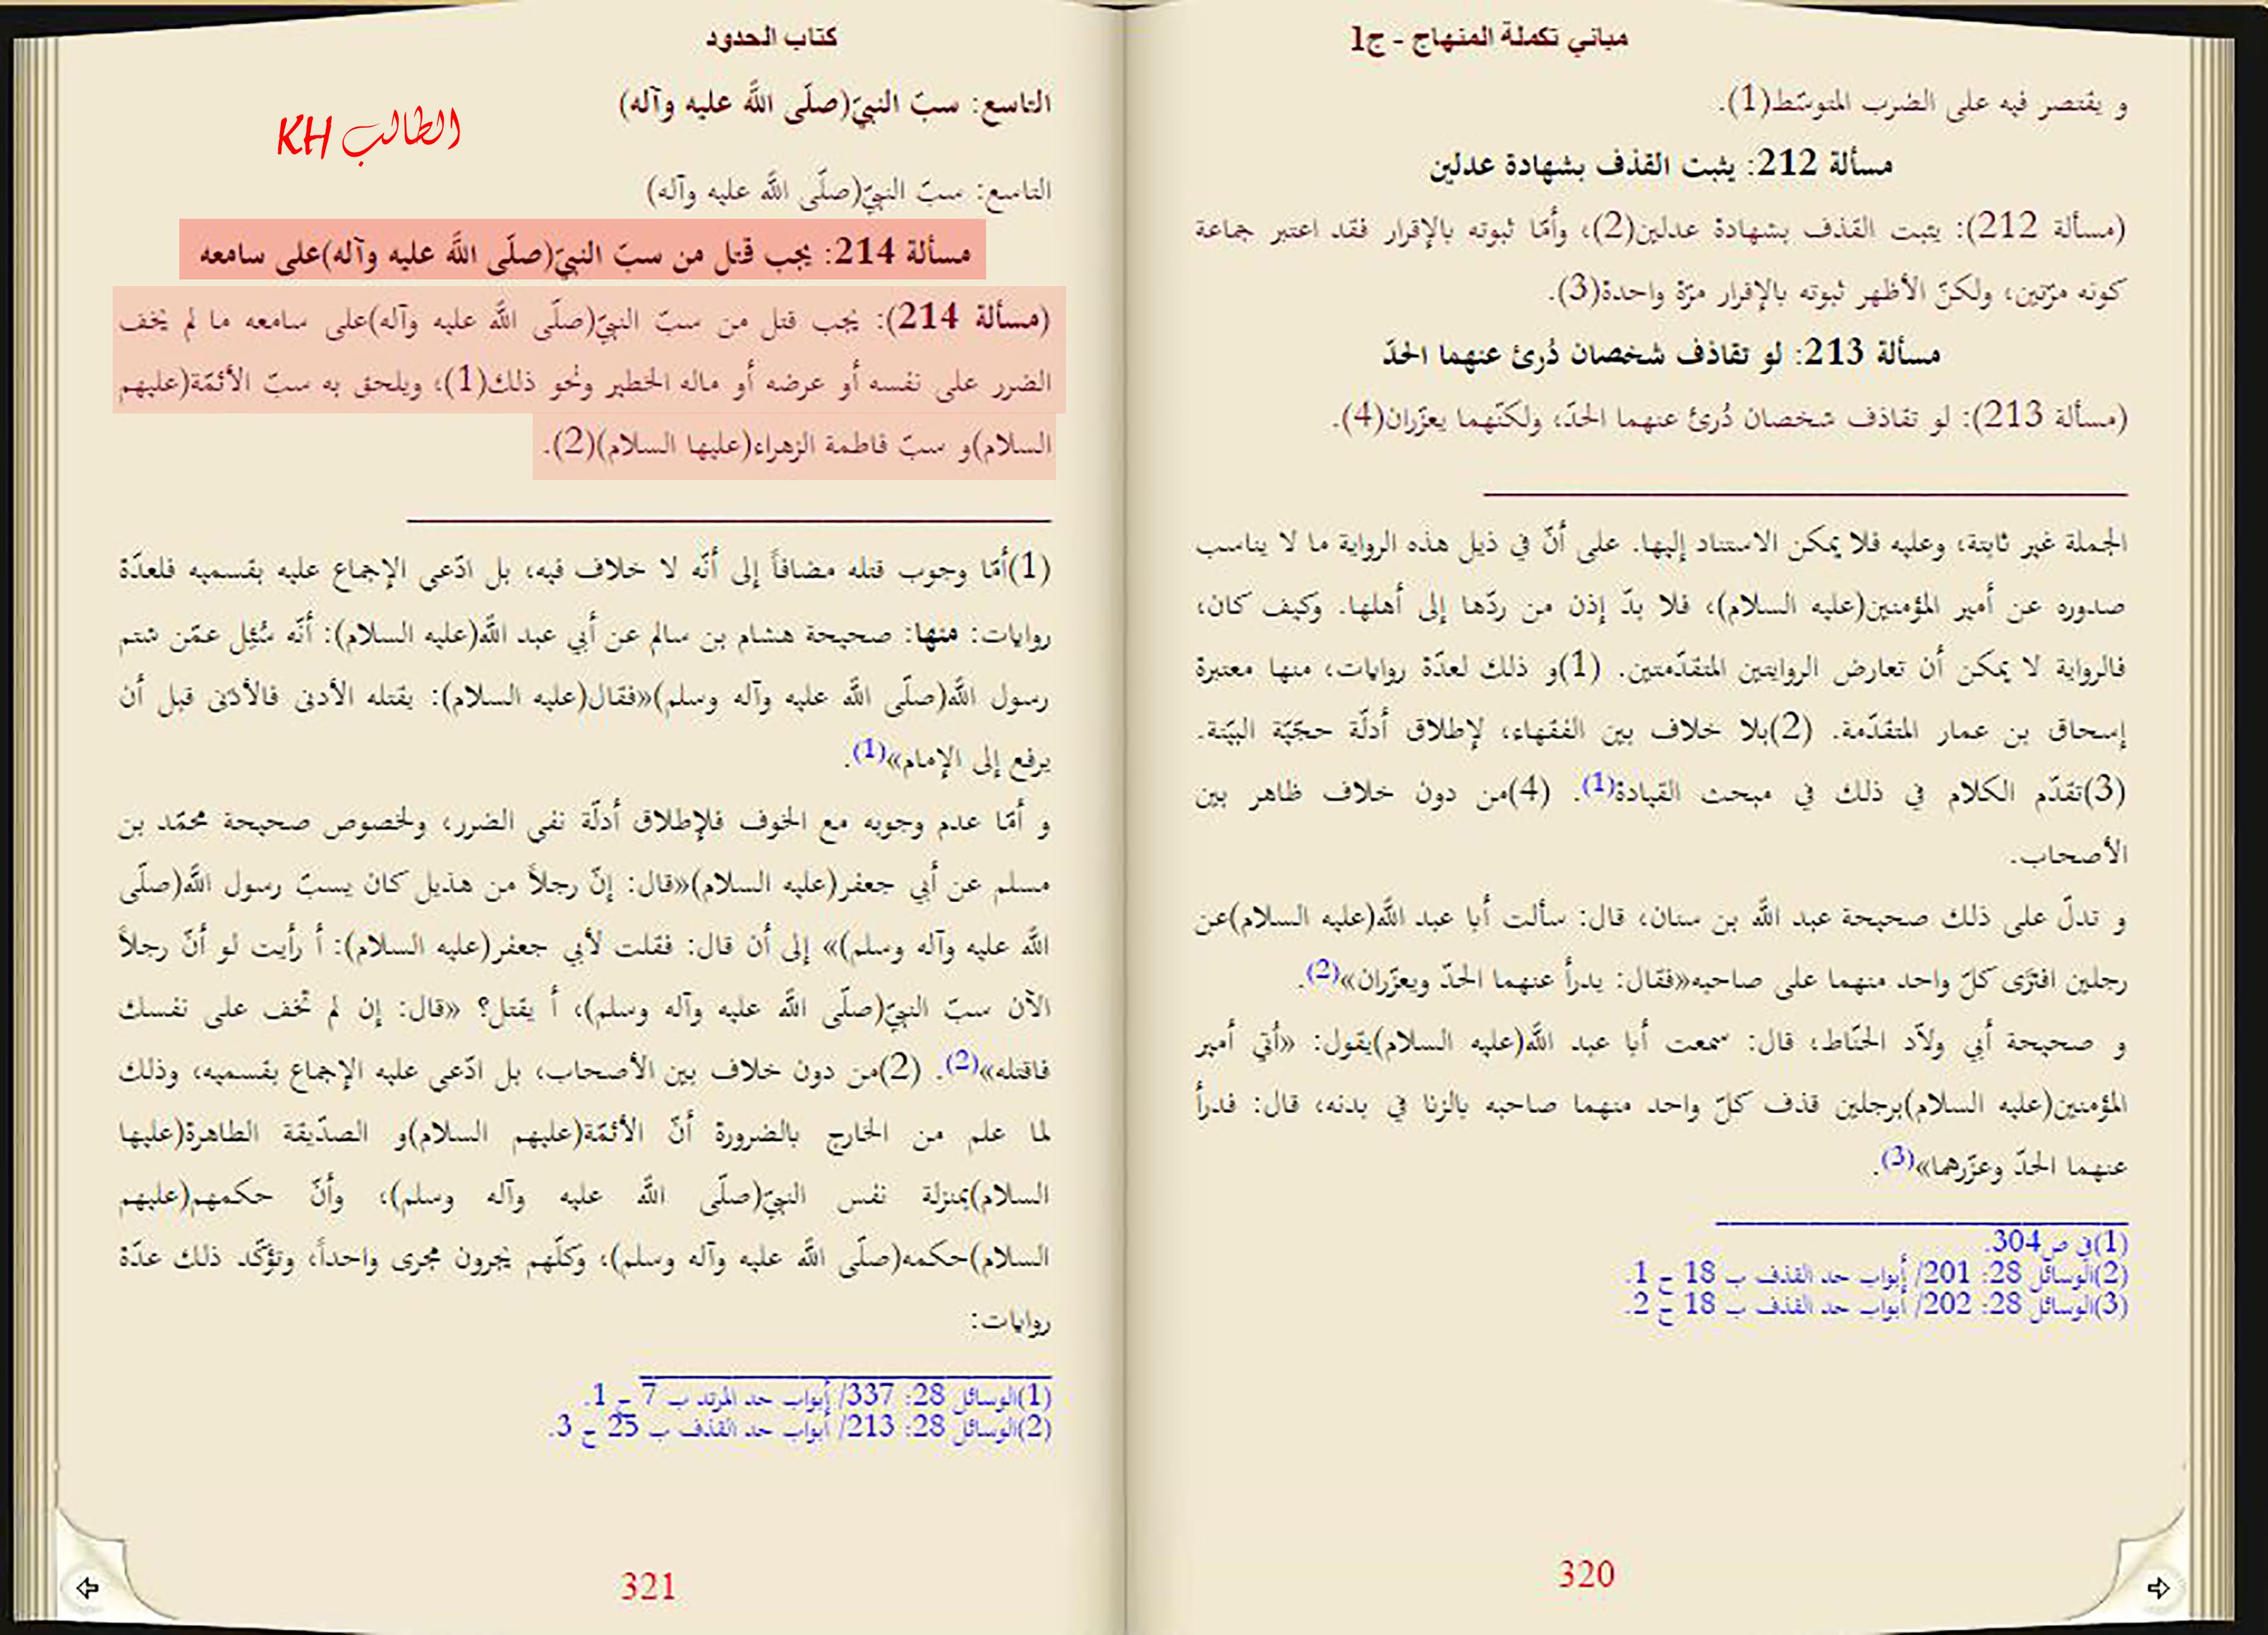 مباني تكملة المنهاج - ج1
و يقتصر فيه على الضرب المتوسّط(1).
مسألة 212: يثبت القذف بشهادة عدلين
(مسألة 212): يثبت القذف بشهادة عدلين(2)، وأمّا ثبوته بالإقرار فقد اعتبر جماعة
كونه مرّتين، ولكنّ الأظهر ثبوته بالإقرار مرّة واحدة(3).
مسألة 213: لو تقاذف شخصان دُرئ عنهما الحدّ
(مسألة 213): لو تقاذف شخصان دُرئ عنهما الحدّ، ولكنّهما يعزّران(4).
الجملة غير ثابتة، وعليه فلا يمكن الاستناد إليها. على أنّ في ذيل هذه الرواية ما لا يناسب
صدوره عن أمير المؤمنين(عليه السلام)، فلا بدّ إذن من ردّها إلى أهلها. وكيف كان،
فالرواية لا يمكن أن تعارض الروايتين المتقدّمتين. (1)و ذلك لعدّة روايات، منها معتبرة
إسحاق بن عمار المتقدّمة. (2)بلا خلاف بين الفقهاء، لإطلاق أدلّة حجّيّة البيّنة.
(3)تقدّم الكلام في ذلك في مبحث القيادة(1). (4)من دون خلاف ظاهر بين
الأصحاب.
و تدلّ على ذلك صحيحة عبد اللّٰه بن سنان، قال: سألت أبا عبد اللّٰه(عليه السلام)عن
رجلين افترى كلّ واحد منهما على صاحبه«فقال: يدرأ عنهما الحدّ ويعزّران»(2).
و صحيحة أبي ولاّد الحنّاط، قال: سمعت أبا عبد اللّٰه(عليه السلام)يقول: «أُتي أمير
المؤمنين(عليه السلام)برجلين قذف كلّ واحد منهما صاحبه بالزنا في بدنه، قال: فدرأ
عنهما الحدّ وعزّرهما»(3).
(1)في ص304.
(2)الوسائل 28: 201/ أبواب حد القذف ب 18 ح 1.
(3)الوسائل 28: 202/ أبواب حد القذف ب 18 ح 2.
320
كتاب الحدود
التاسع: سبّ النبيّ(صلّى اللّٰه عليه وآله)
الطالب KH
التاسع: سبّ النبيّ(صلّى اللّٰه عليه وآله)
مسألة 214: يجب قتل من سبّ النبيّ(صلّى اللّٰه عليه وآله)على سامعه
(مسألة 214): يجب قتل من سبّ النبيّ(صلّى اللّٰه عليه وآله)على سامعه ما لم يخف
الضرر على نفسه أو عرضه أو ماله الخطير ونحو ذلك(1)، ويلحق به سبّ الأئمّة(عليهم
السلام)و سبّ فاطمة الزهراء(عليها السلام)(2).
(1)أمّا وجوب قتله مضافاً إلى أنّه لا خلاف فيه، بل ادّعى الإجماع عليه بقسميه فلعدّة
روايات: منها: صحيحة هشام بن سالم عن أبي عبد اللّٰه(عليه السلام): أنّه سُئِل عمّن شتم
رسول اللّٰه(صلّى اللّٰه عليه وآله وسلم)«فقال(عليه السلام): يقتله الأدنى فالأدنى قبل أن
يرفع إلى الإمام»(1).
و أمّا عدم وجوبه مع الخوف فلإطلاق أدلّة نفي الضرر، ولخصوص صحيحة محمّد بن
مسلم عن أبي جعفر(عليه السلام)«قال: إنّ رجلاً من هذيل كان يسبّ رسول اللّٰه(صلّى
اللّٰه عليه وآله وسلم)» إلى أن قال: فقلت لأبي جعفر(عليه السلام): أ رأيت لو أنّ رجلاً
الآن سبّ النبيّ(صلّى اللّٰه عليه وآله وسلم)، أ يقتل؟ «قال: إن لم تخف على نفسك
فاقتله»(2). (2)من دون خلاف بين الأصحاب، بل ادّعى عليه الإجماع بقسميه، وذلك
لما علم من الخارج بالضرورة أنّ الأئمّة(عليهم السلام)و الصدّيقة الطاهرة(عليها
السلام)بمنزلة نفس النبيّ(صلّى اللّٰه عليه وآله وسلم)، وأنّ حكمهم(عليهم
السلام)حكمه(صلّى اللّٰه عليه وآله وسلم)، وكلّهم يجرون مجرى واحداً، وتؤكّد ذلك عدّة
روايات:
(1)الوسائل 28: 337/ أبواب حد المرتد ب 7 ح 1.
(2)الوسائل 28: 213/ أبواب حد القذف ب 25 ح 3.
321